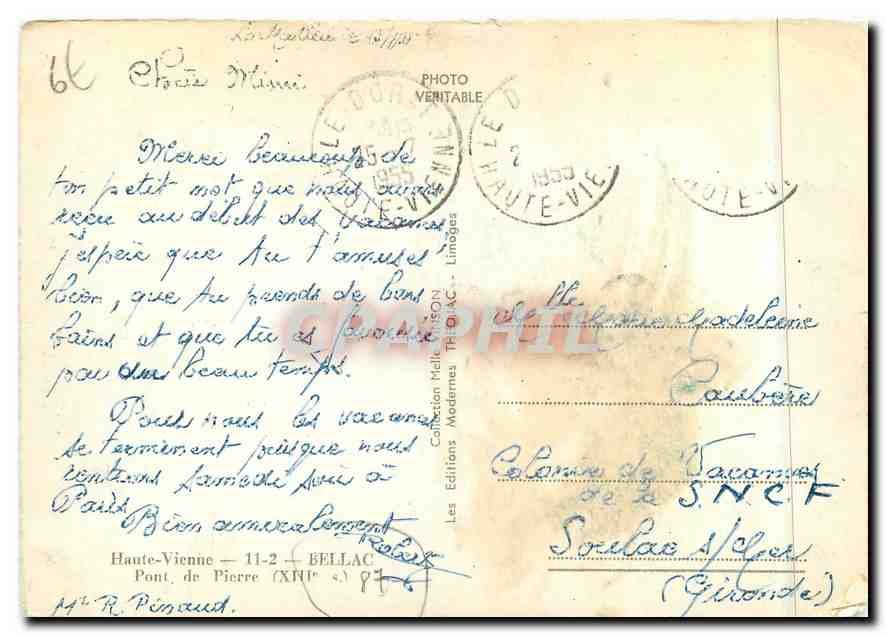 6t
Chère Mimi
PHOTO
VERITABLE
LE DORAT
25-7
1955
HAUTE-VIENNE
LE D
2
1955
HAUTE-VIE
Merci beaucoup de
ton petit mot que nous avons
reçu au début des vacances,
j'espère que tu t'amuses
bien, que tu prends de bons
bains et que tu es favorisée
par du beau temps.
Pour nous les vacances
se terminent puisque nous
rentrons samedi soir à
Paris
Bien amicalement
Robert
Haute-Vienne — 11-2 — BELLAC
Pont de Pierre (XIIIe s.)
87
Mr R. Penaud.
Collection Melle PINSON
Les Editions Modernes THEOJAC - Limoges
CPAPHIL
Melle Madeleine
Caubère
Colonie de Vacances
de la S.N.C.F
Soulac s/Mer
(Gironde)